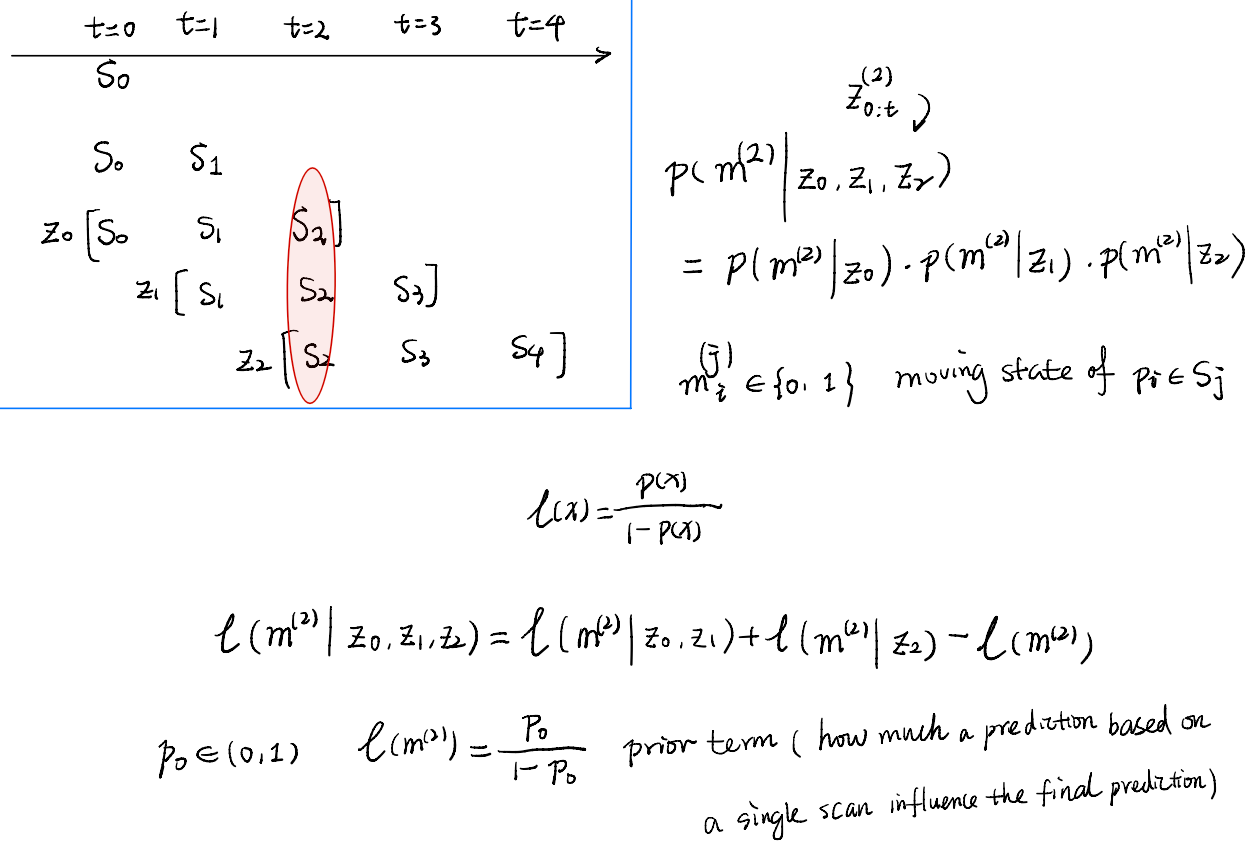 t=0 t=1 t=2 t=3 t=4
S₀
S₀ S₁
z₀ [S₀ S₁ S₂]
z₁ [S₁ S₂ S₃]
z₂ [S₂ S₃ S₄]
z₀:ₜ⁽²⁾
p(m⁽²⁾ | z₀, z₁, z₂)
= p(m⁽²⁾ | z₀) · p(m⁽²⁾ | z₁) · p(m⁽²⁾ | z₂)
mᵢ⁽ʲ⁾ ∈ {0, 1} moving state of pᵢ ∈ Sⱼ
l(x) = p(x) / 1 - p(x)
l(m⁽²⁾ | z₀, z₁, z₂) = l(m⁽²⁾ | z₀, z₁) + l(m⁽²⁾ | z₂) - l(m⁽²⁾)
p₀ ∈ (0, 1) l(m⁽²⁾) = p₀ / 1 - p₀ prior term ( how much a prediction based on
a single scan influence the final prediction)